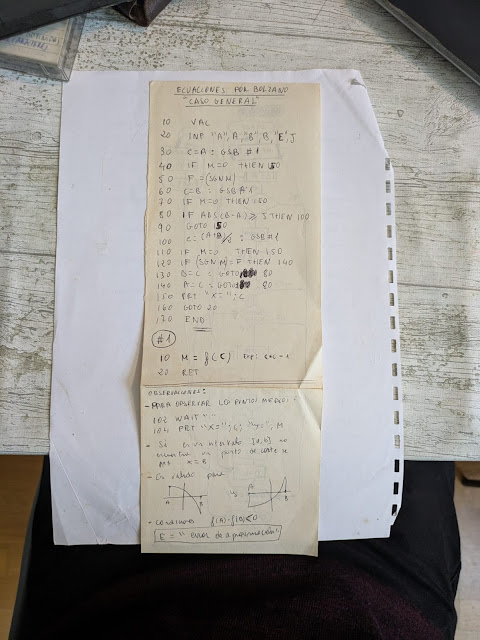 ECUACIONES POR BOLZANO
"CASO GENERAL"
10 VAC
20 INP "A", A, "B", B, "E", J
30 C=A : GSB #1
40 IF M=0 THEN 150
50 F = (SGN M)
60 C=B : GSB #1
70 IF M=0 THEN 150
80 IF ABS (B-A) ≥ J THEN 100
90 GOTO 150
100 C = (A+B)/2 : GSB #1
110 IF M=0 THEN 150
120 IF (SGN M)=F THEN 140
130 B=C : GOTO 80
140 A=C : GOTO 80
150 PRT "X="; C
160 GOTO 20
170 END
#1
10 M = f(C)
20 RET
OBSERVACIONES:
- PARA OBSERVAR LOS PUNTOS MEDIOS:
102 WAIT
104 PRT "X="; C; "Y="; M
- Si en un intervalo [A,B] no
encuentra un punto de corte se
X = B
- Es válido para
A B y A B
- Condiciones f(A)·f(B)<0
E = "error de aproximación"